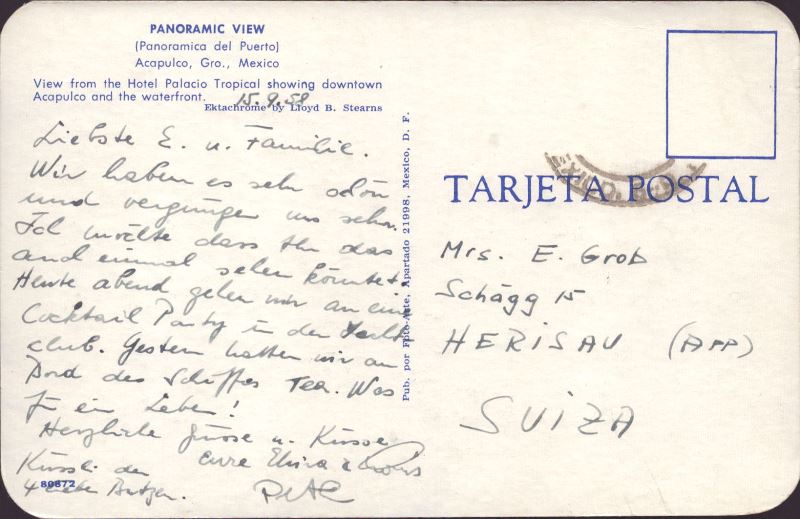 PANORAMIC VIEW
(Panoramica del Puerto)
Acapulco, Gro., Mexico
View from the Hotel Palacio Tropical showing downtown
Acapulco and the waterfront.
Ektachrome by Lloyd B. Stearns
15.9.58
Liebste E. u. Familie.
Wir haben es sehr schön
und vergnügen uns sehr.
Ich möchte dass Ihr das
auch einmal sehen könntet.
Heute abend gehen wir an eine
Cocktail Party in den Yacht
club. Gestern hatten wir an
Bord des Schiffes Tea. Was
für ein Leben!
Herzliche Grüsse u. Küsse
Eure
Küssli den
4 Butzen.
80872
Pub. por Foto-Arte, Apartado 21998, Mexico, D. F.
TARJETA POSTAL
Mrs. E. Grob
Schägg 15
HERISAU (APP)
SUIZA